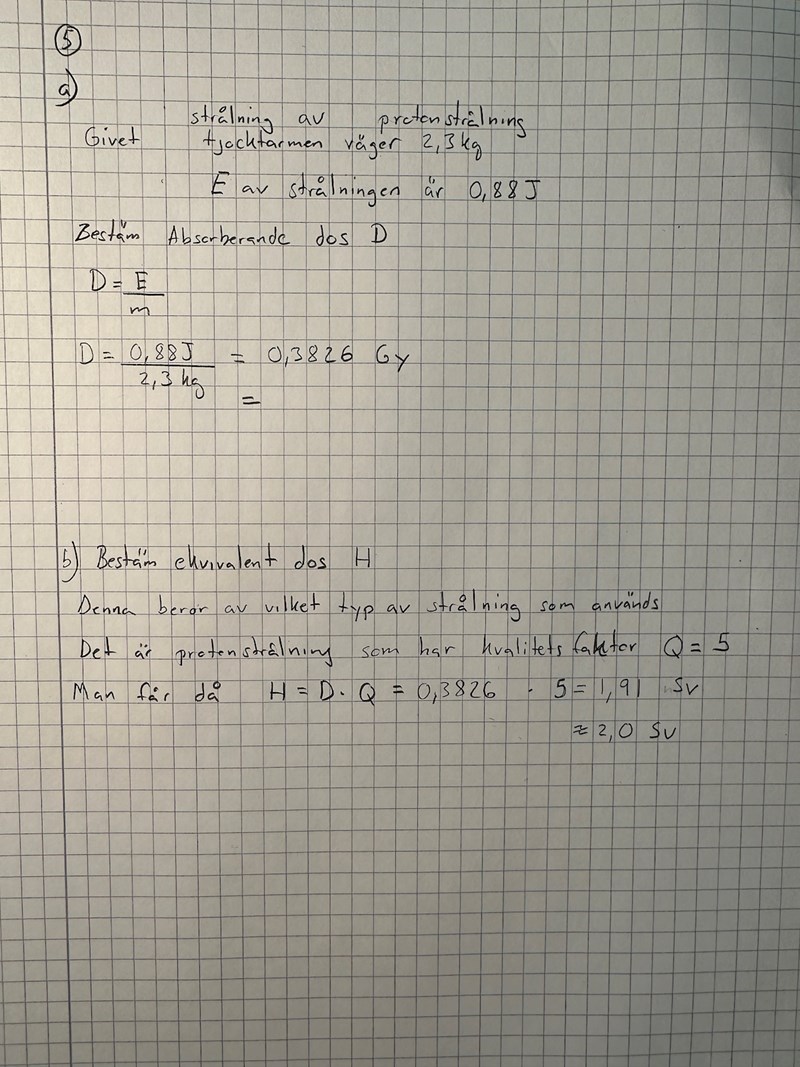 5
a)
strålning av protonstrålning
Givet tjocktarmen väger 2,3 kg
E av strålningen är 0,88 J
Bestäm Absorberande dos D
D = E/m
D = 0,88 J / 2,3 kg = 0,3826 Gy
=
b) Bestäm ekvivalent dos H
Denna beror av vilket typ av strålning som används
Det är protonstrålning som har kvalitets faktor Q = 5
Man får då H = D · Q = 0,3826 · 5 = 1,91 Sv
≈ 2,0 Sv